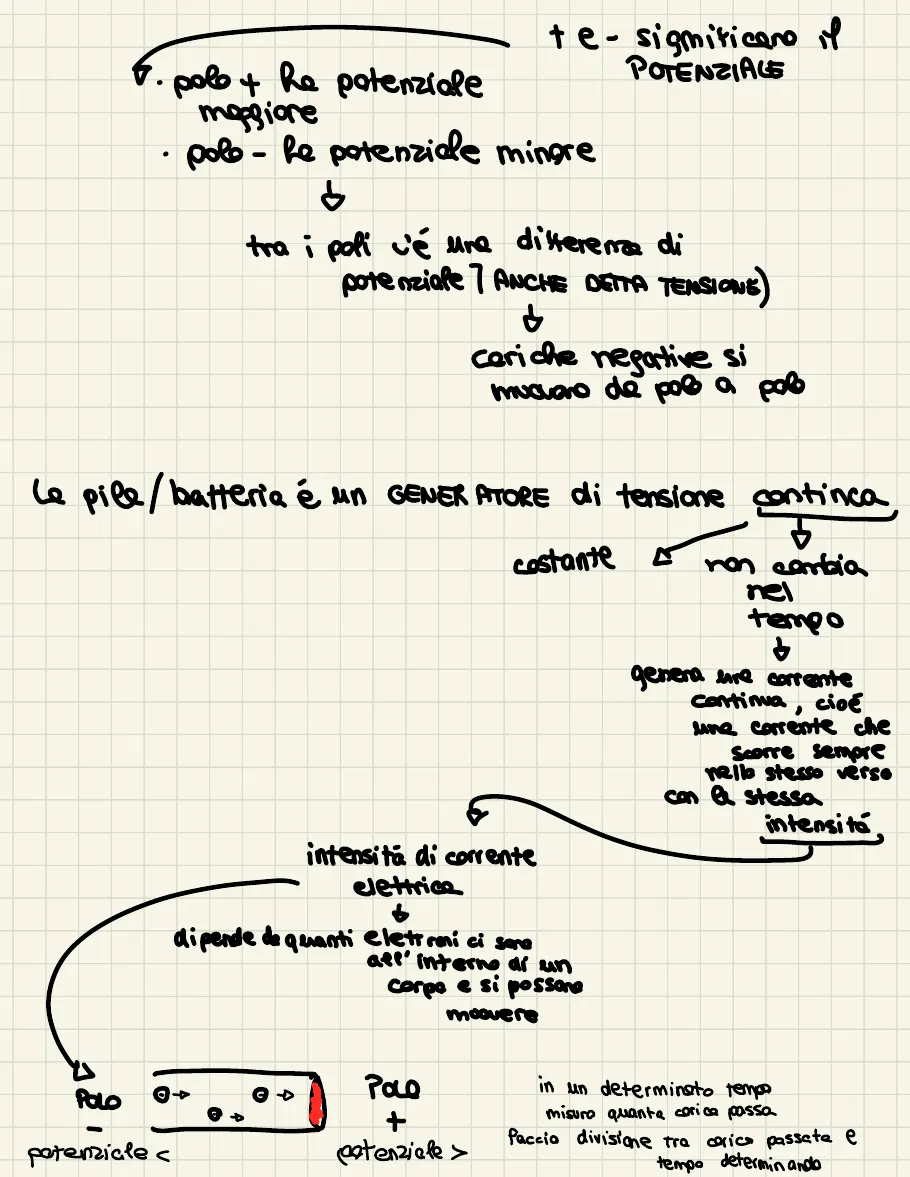 + e - significano il
POTENZIALE
· polo + ha potenziale
maggiore
· polo - ha potenziale minore
tra i poli c'é una differenza di
potenziale (ANCHE DETTA TENSIONE)
cariche negative si
muovono da polo a polo
La pila/batteria é un GENERATORE di tensione continua
costante
non cambia
nel
tempo
genera una corrente
continua, cioé
una corrente che
scorre sempre
nello stesso verso
con la stessa
intensitá
intensitá di corrente
elettrica
dipende da quanti elettroni ci sono
all'interno di un
corpo e si possono
muovere
POLO
-
potenziale <
POLO
+
potenziale >
in un determinato tempo
misuro quanta carica passa
faccio divisione tra carica passata e
tempo determinando